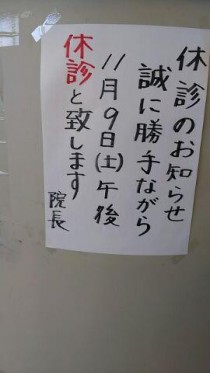 休診のお知らせ
誠に勝手ながら
11月9日(土)午後
休診と致します
院長